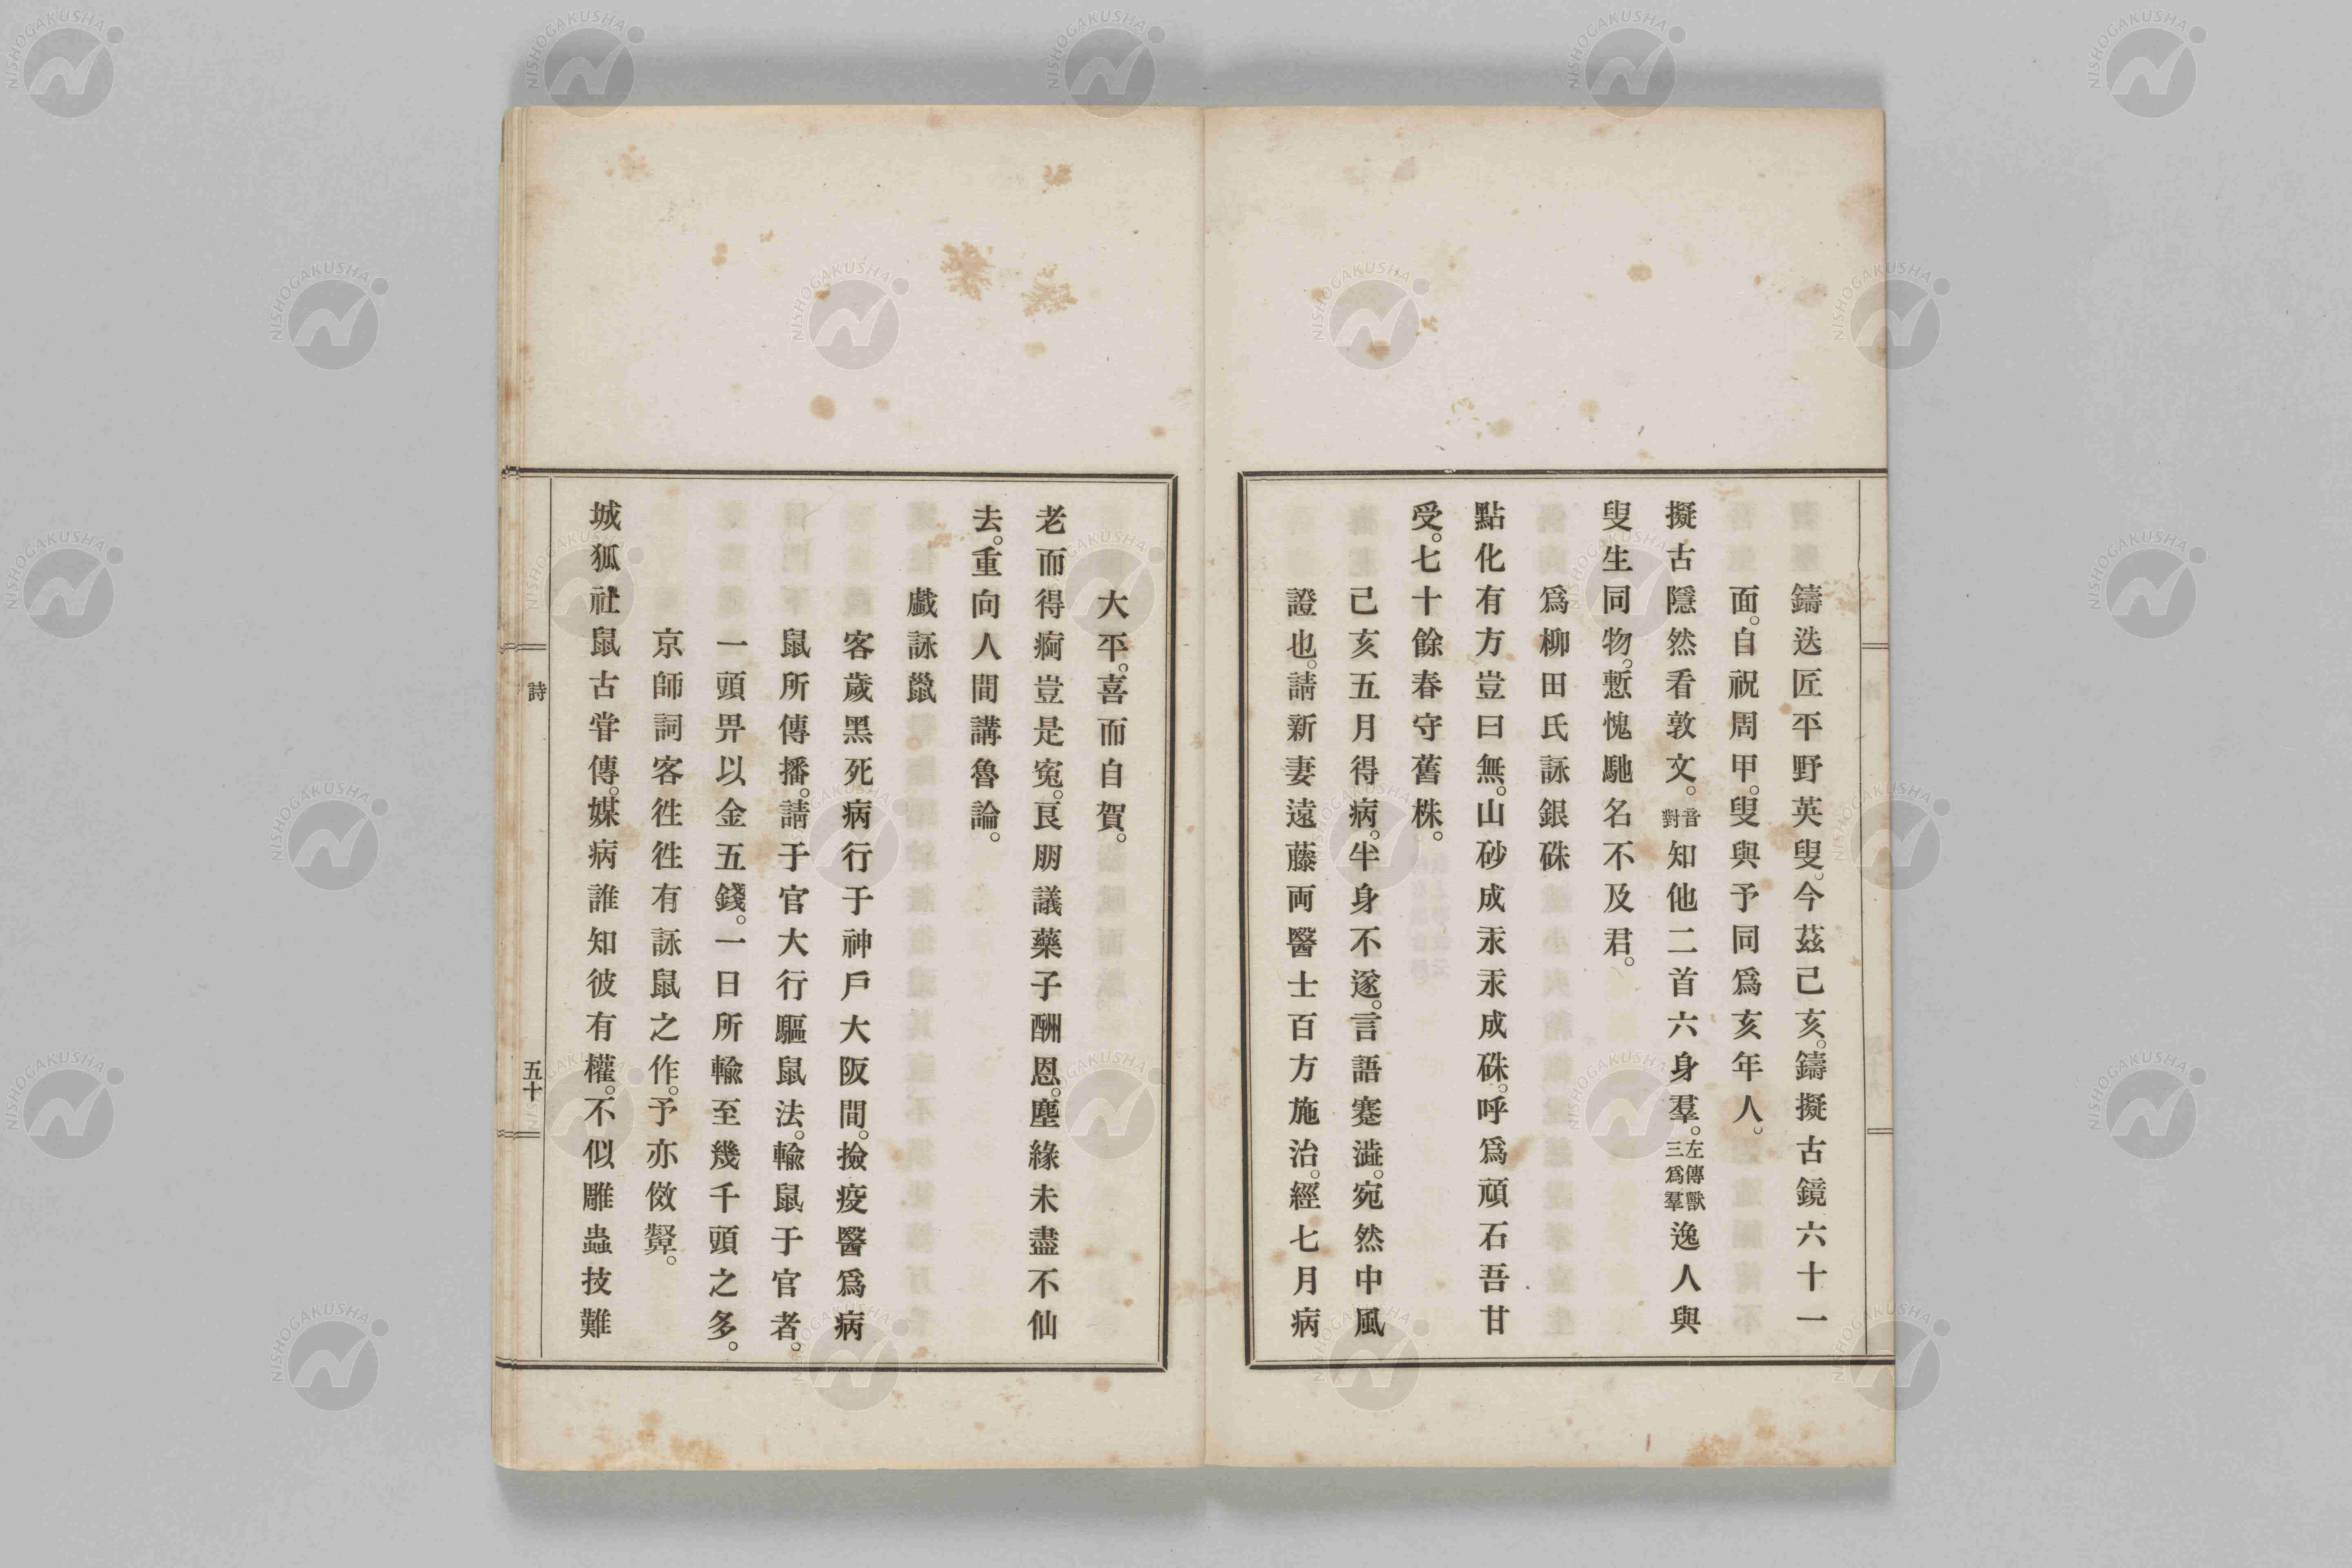 鑄迭匠平野英叟。今茲己亥。鑄擬古鏡六十一
面。自祝周甲。叟與予同爲亥年人。
擬古隱然看敦文。音對知他二首六身羣。左傳獸三爲羣逸人與
叟生同物。慙愧馳名不及君。
爲柳田氏詠銀硃
點化有方豈曰無。山砂成汞汞成硃。呼爲頑石吾甘
受。七十餘春守舊株。
己亥五月得病。半身不遂。言語蹇澁。宛然中風
證也。請新妻遠藤両醫士百方施治。經七月病
大平。喜而自賀。
老而得痾豈是寃。良朋議藥子酬恩。塵緣未盡不仙
去。重向人間講魯論。
戲詠鼠
客歲黑死病行于神戶大阪間。撿疫醫爲病
鼠所傳播。請于官大行驅鼠法。輸鼠于官者。
一頭畀以金五錢。一日所輸至幾千頭之多。
京師詞客徃徃有詠鼠之作。予亦傚顰。
城狐社鼠古甞傳。媒病誰知彼有權。不似雕蟲技難
詩
五十
NISHOGAKUSHA